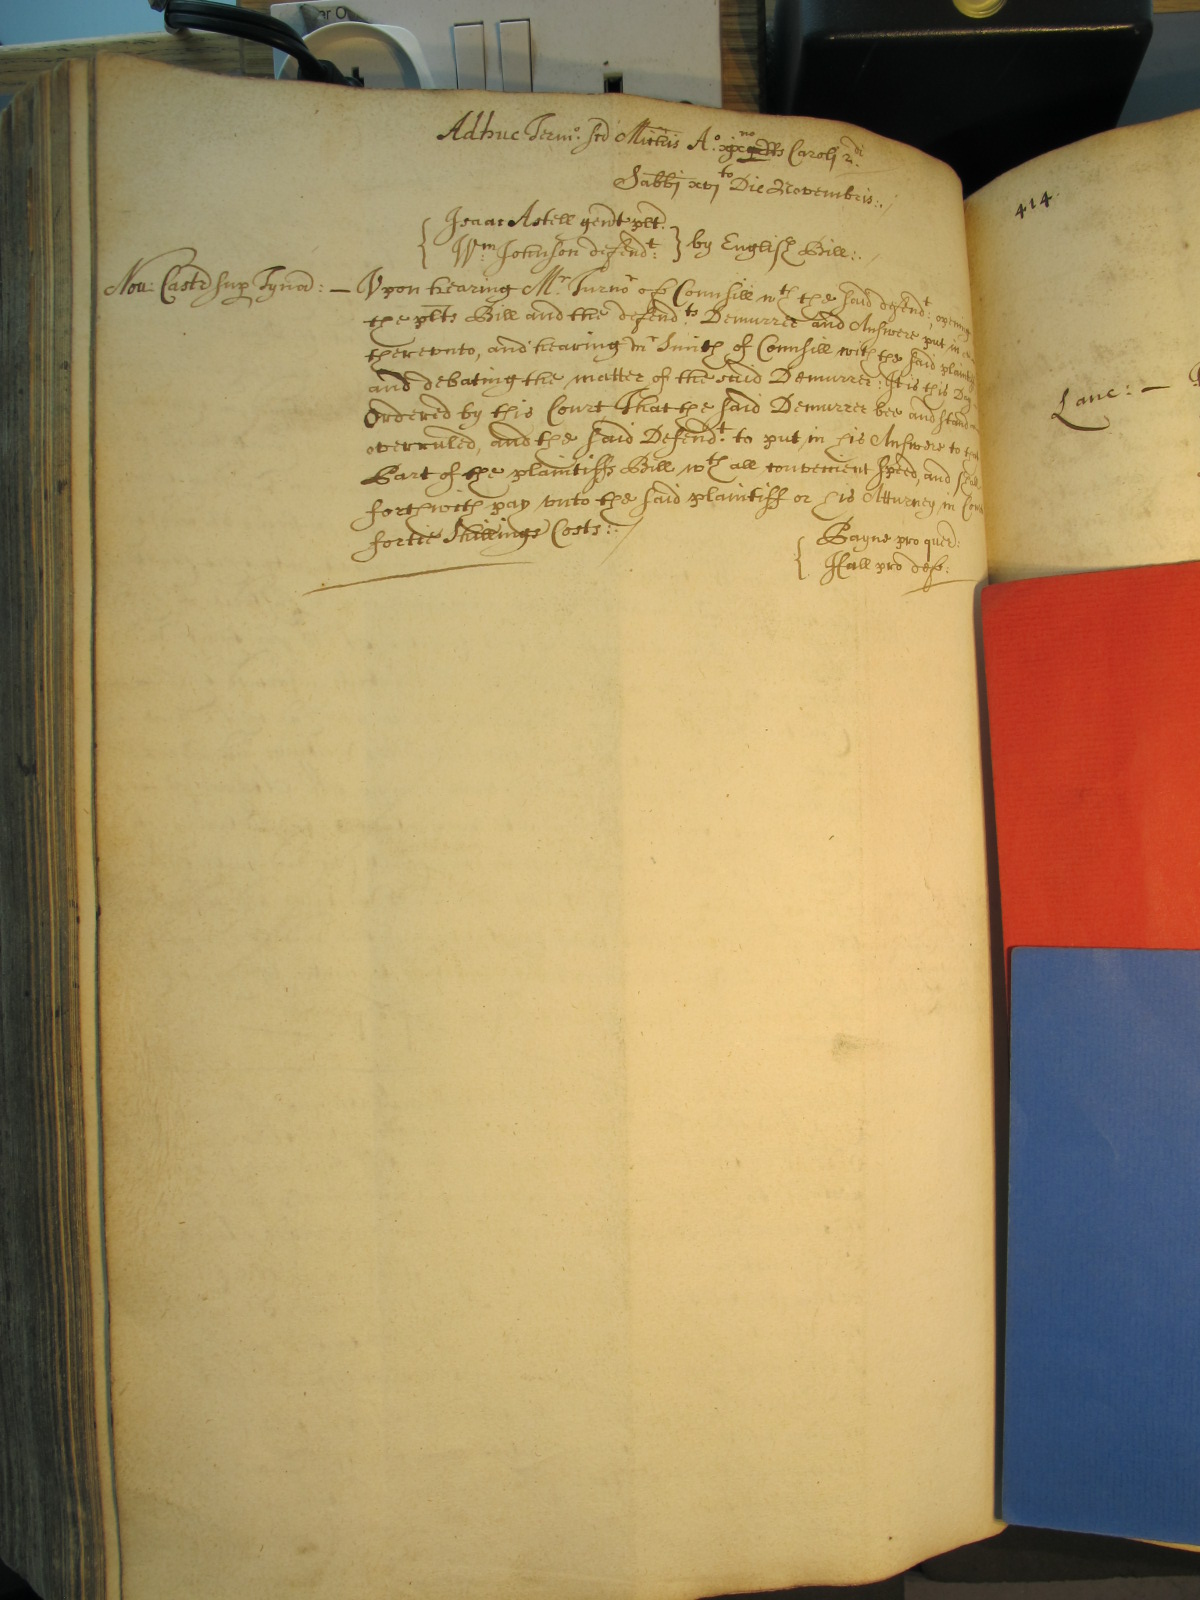 Adhuc Term.o Scti Mich'is A.o xix no R Rs Caroli 2.di
Sabbi xvj to Die Novembris:.
Isaac Astell gent plt.
Wm Johnson defend.t } by English Bill:.
Nov: Castr sup Tynam: — Upon hearing Mr Turnor of Counsill wth the said defend.t, opening
the plts Bill and the defend.ts Demurrer and Answere put in
thereunto, and hearing Mr Smith of Counsill with the said plaint
and debating the matter of the said Demurrer: It is this Day
Ordered by this Court That the said Demurrer bee and stand
overruled, and the said Defend.t to put in his Answere to that
Part of the plaintiffs Bill wth all convenient speed, and shall
forthwith pay unto the said plaintiff or his Atturney in Court
fortie Shillings Costs:.
Bayne pro quer:
Hall pro def:
414.
Lanc: —